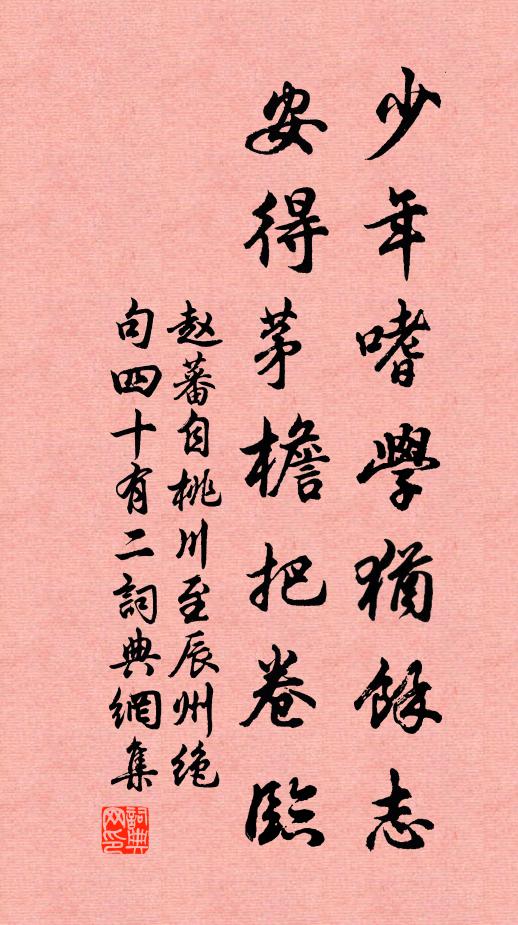 少年嗜學猶餘志
安得茅檐把卷臨
赵蕃自桃川至辰州绝
句四十有二詞典網集
詞典
网印